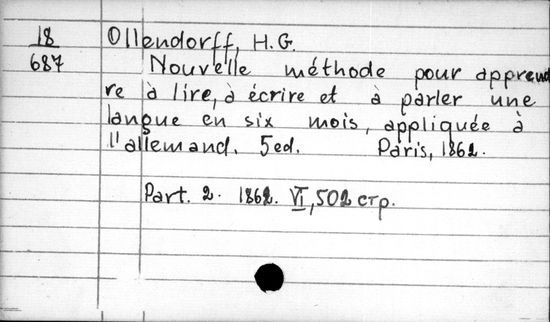 18
687
Ollendorff, H.G.
Nouvelle méthode pour apprend
re à lire, à écrire et à parler une
langue en six mois, appliquée à
l'allemand. 5ed. Paris, 1862.
Part. 2. 1862. VI, 502 стр.